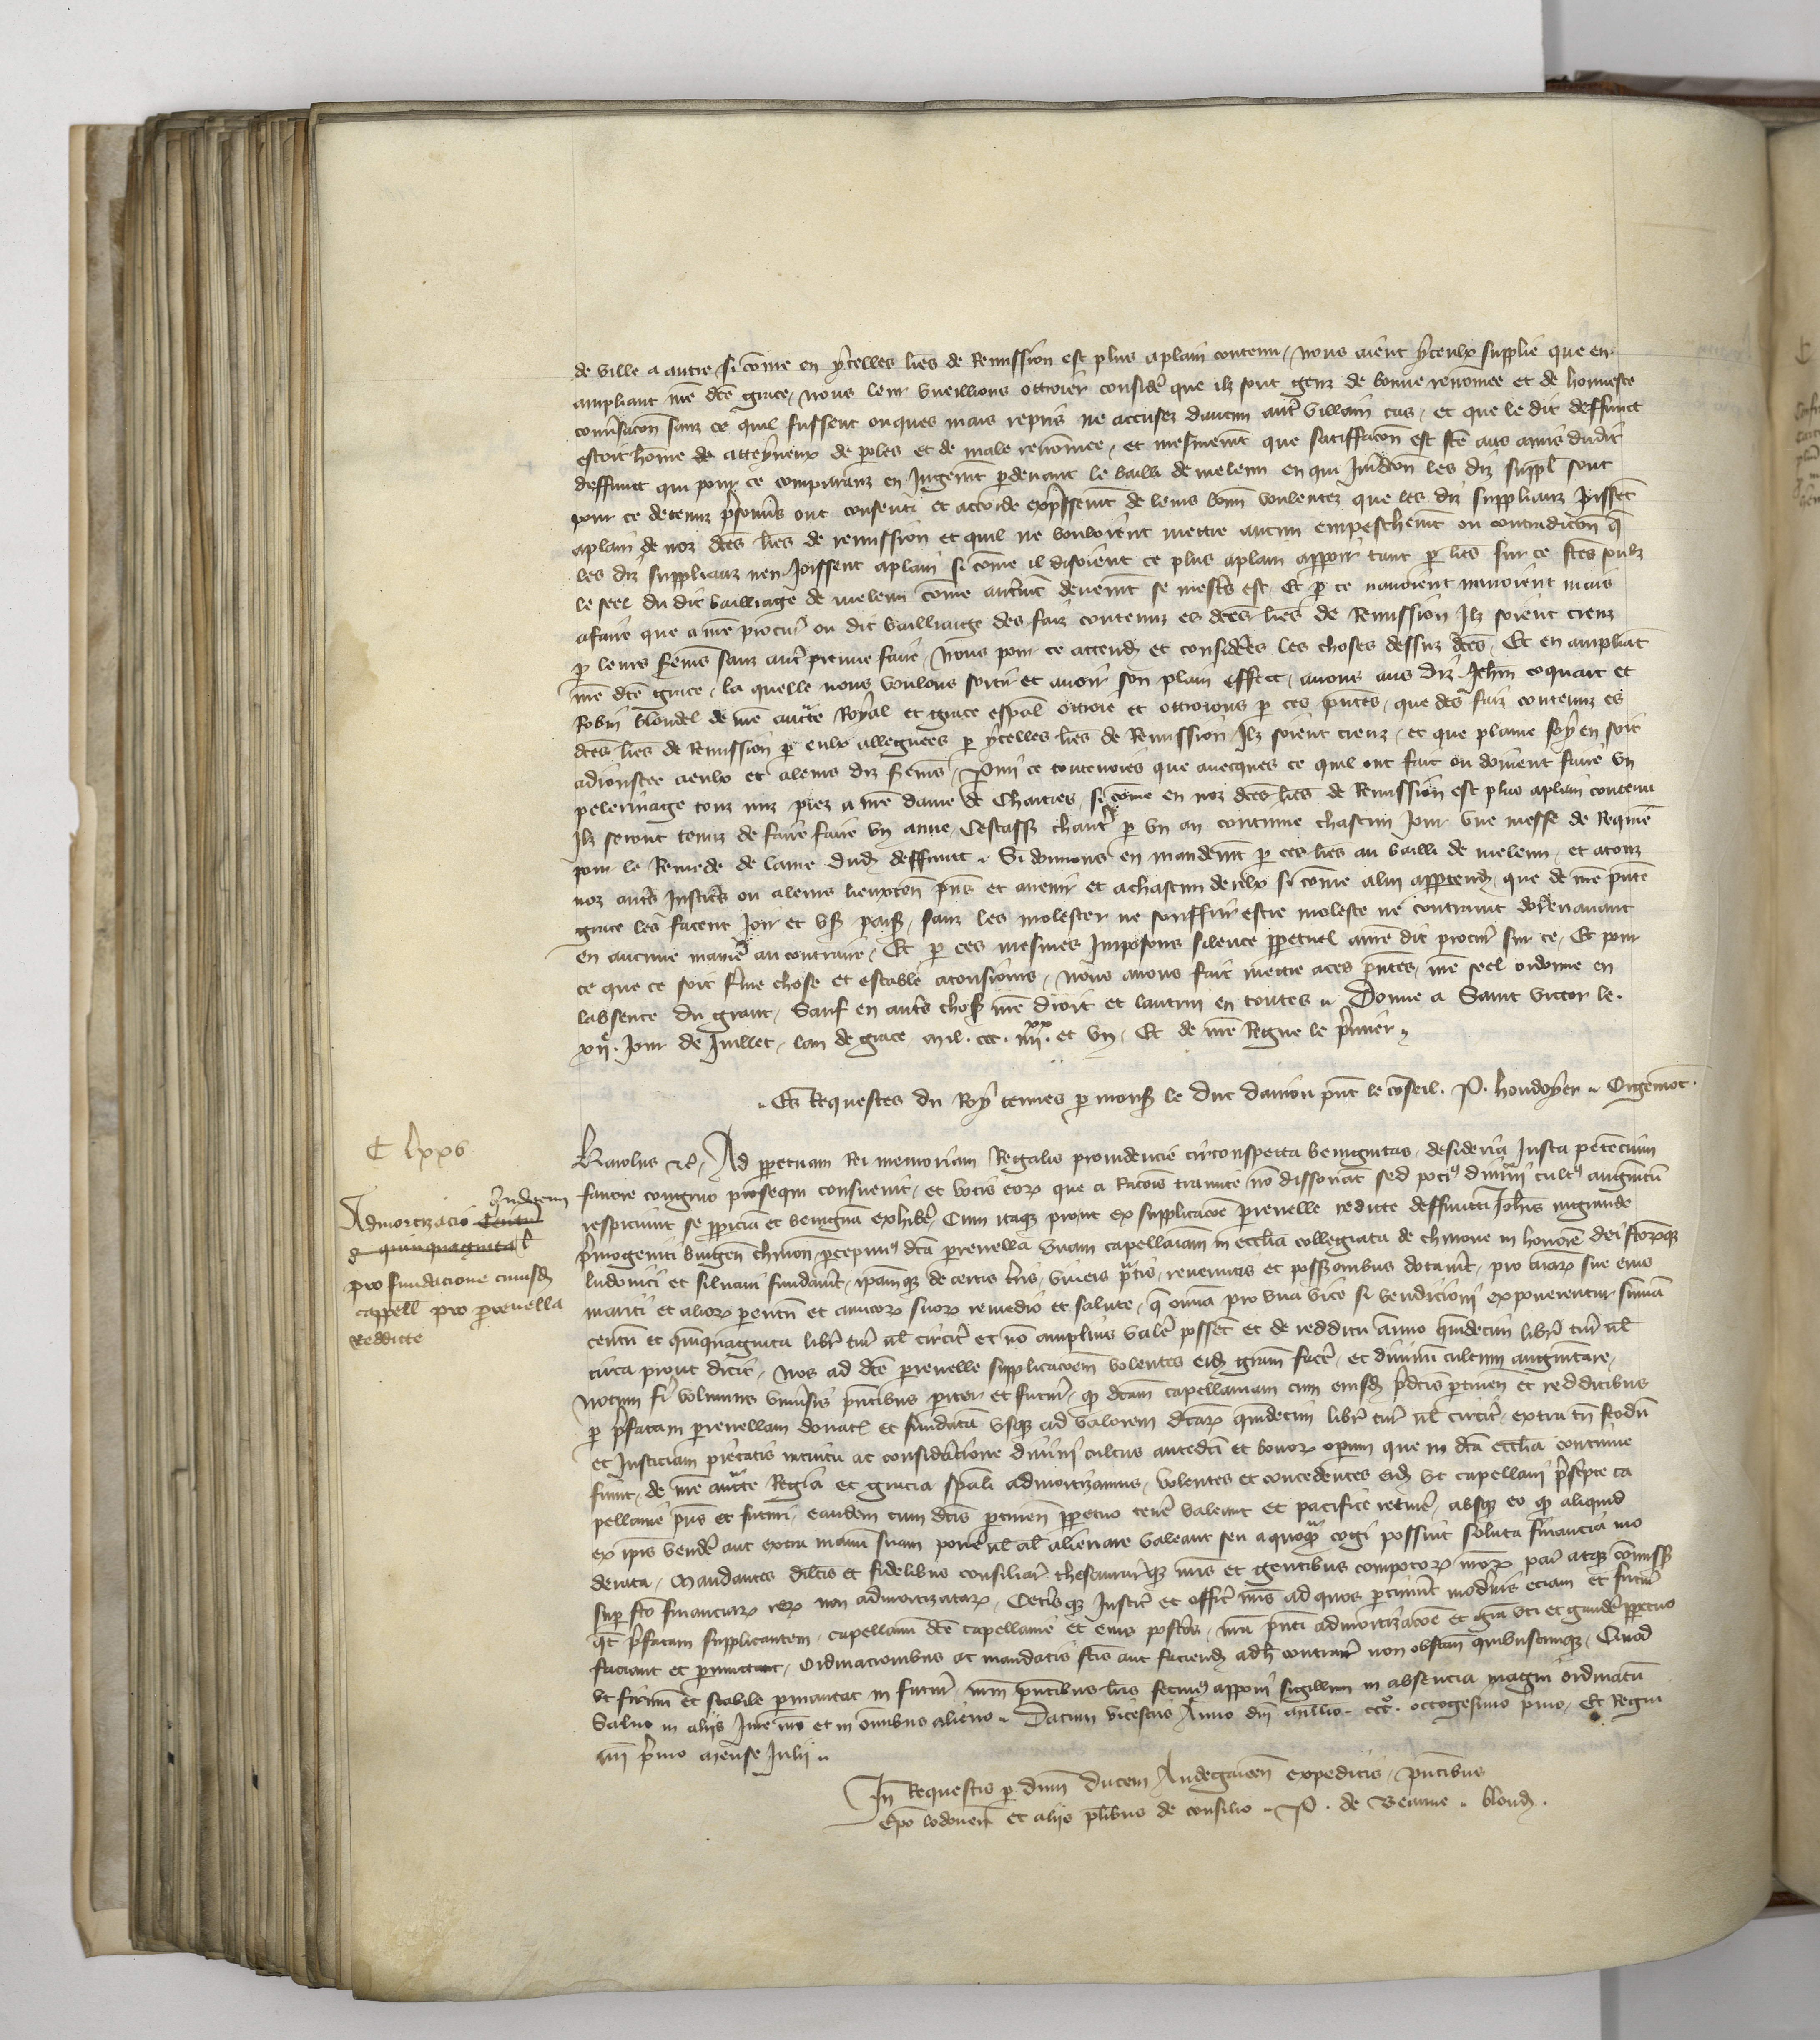 de ville a autre si come en ycelles lres de Remission est plus aplain contenu, nous aient yceulx supplie que en
ampliant nre dte grace, nous leur vueillions ottroier considere que ilz sont genz de bonne renommee et de honneste
conversacon sanz ce quil fussent onques mais repris ne accusez daucun autre villain cas, et que le dit deffunct
estoit home de atteyneux de poles et de male renommee, et mesmement que satiffacon est fte aus amis dudit
deffunct qui pour ce comparanz en Jugemt pardevant le bailli de meleun en qui Juridicon les diz suppl sont
pour ce detenuz prisonniers ont consenti et accorde expressemt de leurs bonn voulentez que les diz supplianz joissent
aplain de noz dtes lres de remission et quil ne vouloient mettre aucun empeschemt ou contradicon q
les diz supplianz nen Joissent aplain si come il disoient ce plus aplain apparoir tant p lres sur ce ftes soubz
le seel du dit bailliage de meleun come autremt deuemt se mestier est, Et p ce navoient mais
afaire que a nre procur ou dit bailliaige des faiz contenuz es dtes lres de Remission Ilz soient creuz
p leurs sermens sanz autre preuve faire, Nous pour ce attendu et considerees les choses dessuz dtes, Et en ampliant
nre dte grace, la quelle nous voulons sortir et avoir son plain effect, avons aus diz Jehan coquart et
Robin blondel de nre auctte Royal et grace espal ottroie et ottroions p ces pntes, que des faiz contenuz es
dtes lres de Remission p eulx alleguees p ycelles lres de Remission Ilz soient creuz, et que plaine foy en soit
adioustee aeulx et aleurs diz sermens, Parmi ce toutevoies que avecques ce quil ont fait ou doivent faire un
pelerinage touz nuz piez a nre dame de Chartres, si come en noz dtes lres de Remission est plus aplain contenu
Ilz seront tenuz de faire faire un annue, Cestass chanter p un an continue chascun jour une messe de Requiem
pour le Remede de lame dud deffunct. Si donnons en mandemt p ces lres au bailli de meleun, et atouz
noz autres Justiciers ou aleurs lieuxten pns et avenir et achascun deulx si come alui appartendra, que de nre pnte
grace les facent Joir et user paisiblement, sanz les molester ne souffrir estre moleste ne contraint dorenavant
en aucune maniere au contraire, Et p ces mesmes Imposons silence ppetuel anre dit procur sur ce, Et pour
ce que ce soit ferme chose et estable atousiours, nous avons fait mettre aces pntes, nre seel ordonne en
labsence du grant, Sauf en autres choses nre droit et lautrui en toutes. Donne a Saint victor le
xije. Jour de Juillet, lan de grace mil. ccc. iiijxx. et un, Et de nre Regne le premier.
Es Requestes du Roy tenues p mons le duc danjou pnt le conseil. P. houdoyer. Orgemont.
C lxxv
Admortizacio centu quindecim
quinquaginta l
pro fundacione cuiusd
cappell pro perenella
Redditte
Karolus etc. Ad ppetuam Rei memoriam Regalis providencie circonspecta benignitas, desideria Justa petencium
favore congruo prosequi consuevit, et votis eor que a Racois tramite no dissonant sed poci divini cultus augmentu
respiciunt se ppiciam et benignam exhibere, Cum itaque prout ex supplicacoe perenelle reditte deffuncti Johis
primogeniti burgen chinon, percepimus dcta perenella unam capellaniam in ecclia collegiata de chinone in honore dei storque
ludovici et silvani fundaverit, ipamque de certis terris, vineis pratis, revenutis et possessionibus dotaverit, pro animar sue eius
mariti et alior parentu et amicor suor remedio et salute, que omia pro una vice si vendicioni exponerentur summa
centu et quinquaginta libr tur vel circiter et no amplius valere possent et de redditu anno quindecim libr tur vel
circa prout dicit, Nos ad dcte perenelle supplicacoem volentes eid gram facere, et divinu cultum augmentare,
notum fieri volumus universis pntibus pariter et futuris, q dctam capellaniam cum eiusd predctis pertinen et redditibus
p prefatam perenellam donat et fundata usque ad valorem dctar quindecim libr tur vel circiter, extra tn feodu
et Justiciam pietatis intuitu ac consideracione divini cultus antedcti et bonor operum que in dcta ecclia continue
fiunt, de nre auctte Regia et gracia spali admortizamus, volentes et concedentes eid ut capellani prescripte ca
pellanie pns et futuri, eandem cum dctis pertinen ppetuo tenere valeant et pacifice retinere, absque eo q aliquid
ex ipis vendere aut extra manu suam ponere vel al alienare valeant seu a quoquam cogi possint soluta financia mo
derata, Mandantes dilctis et fidelibus consiliar thesaurarque nris et gentibus compotor nror par atque comiss
sup fto financiar rer non admortizatar, Ceterisque Justic et offic nris ad quos pertinuit modernis eciam et futur
qt prefatam supplicantem, capellanu dcte capellanie et eius posteros, nra pnti admortizacoe et gra uti et gaudere ppetuo
faciant et permittant, ordinacionibus ac mandatis ftis aut faciend adhoc contrariis non obstan quibuscunque, Quod
ut firmu et stabile permaneat in futur, nrm pntibus lris fecimus apponi sigillum in absencia magni ordinatu
Salvo in aliis Jure nro et in omibus alieno. Datum vicestris Anno dni millio. ccco. octogesimo primo, Et Regni
nri primo mense Julii.
In Requestis p dnm ducem Andegaven expeditis, pntibus
Epo lodoven et aliis plibus de consilio. P. de Veurne. blond.